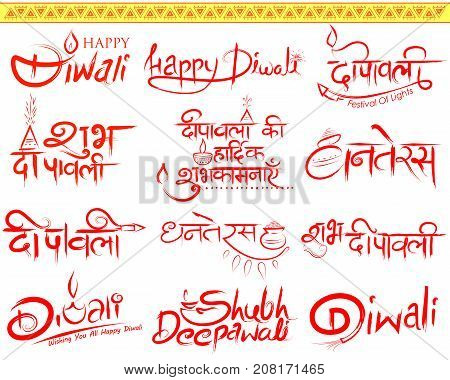 HAPPY
Diwali
Happy Diwali
दीपावली
Festival Of Lights
शुभ
दीपावली
दीपावली की
हार्दिक
शुभकामनाएँ
धनतेरस
दीपावली
धनतेरस
शुभ दीपावली
Diwali
Wishing You All Happy Diwali
Shubh
Deepawali
Diwali
Image ID: 208171465
www.bigstock.com